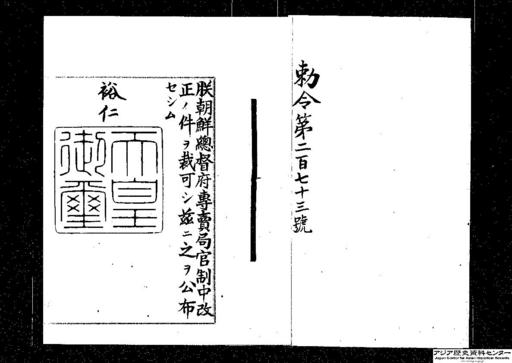 勅令第二百七十三號
朕朝鮮總督府專賣局官制中改
正ノ件ヲ裁可シ茲ニ之ヲ公布
セシム
裕仁
天皇
御璽
アジア歴史資料センター
Japan Center for Asian Historical Records